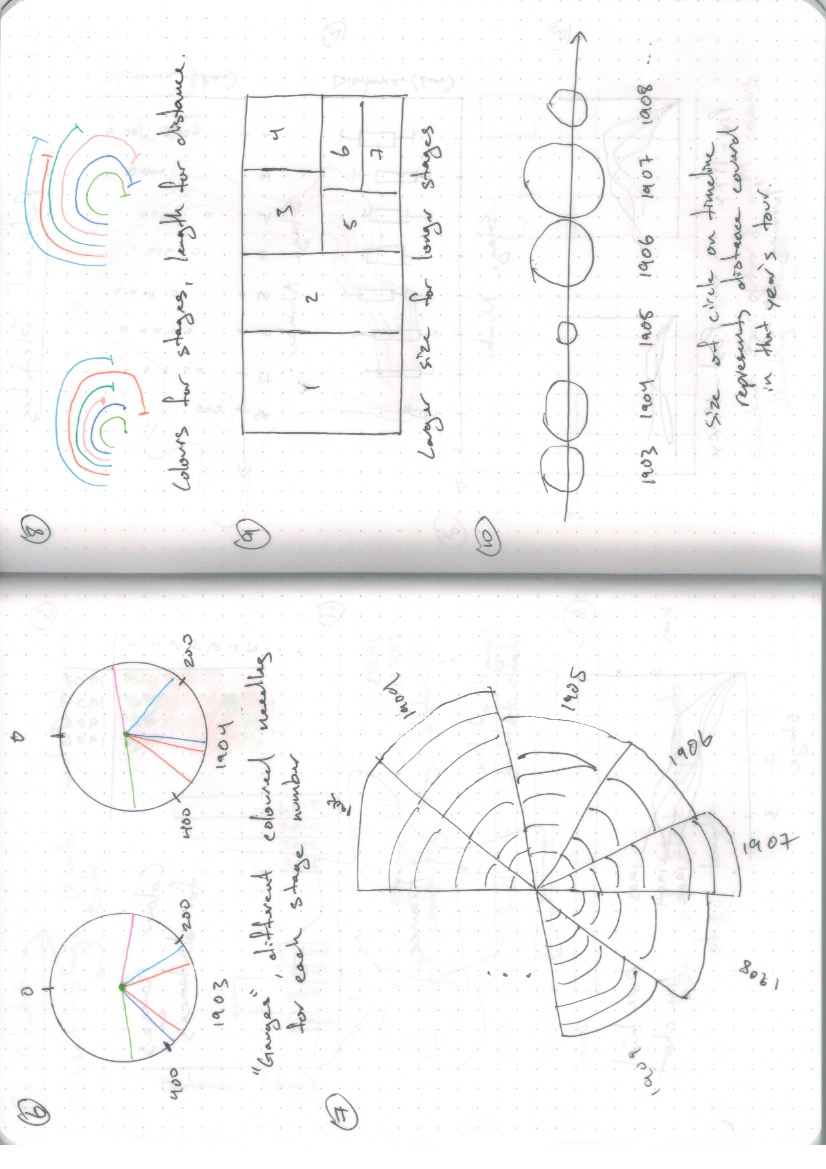 6
0
400
200
1903
0
400
200
1904
"Gauges", different coloured needles
for each stage number
7
1904
1905
1906
1907
1908
1909
8
Colours for stages, length for distance.
9
1
2
3
4
5
6
7
Larger size for longer stages
10
1903 1904 1905 1906 1907 1908 ...
Size of circle on timeline
represents distance covered
in that year's tour.